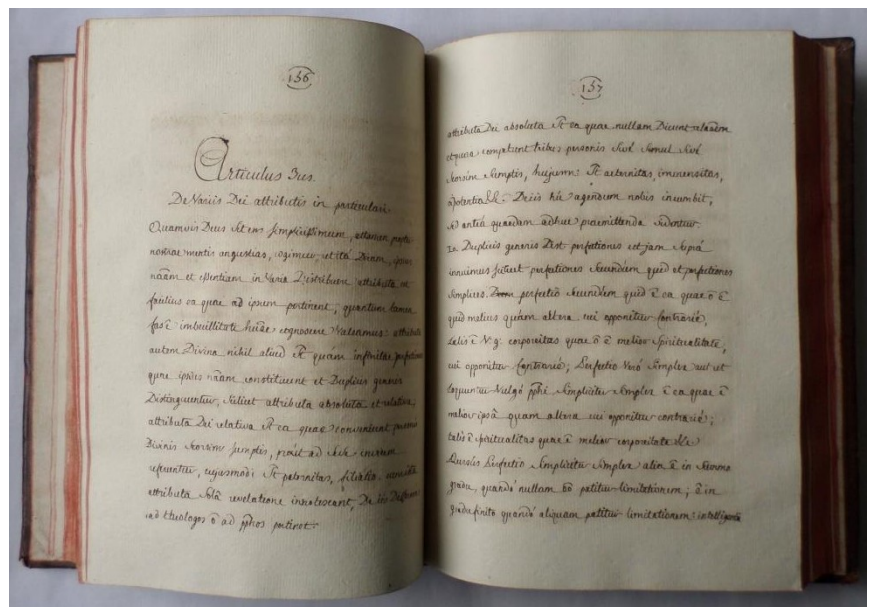 156
Articulus 3us.
De Variis Dei attributis in particulari
Quamvis Deus sit ens simplicissimum, attamen propter
nostrae mentis angustias, cogimur, ut ita Dicam, ipsius
nãam et essentiam in Varia Distribuere attributa ut
facilius ea quae ad ipsum pertinent, quantum tamen
fas ẽ imbecillitate humana cognoscere Valeamus: attributa
autem Divina nihil aliud st quam infinitae perfectiones
quae ipsius nãam constituunt et Duplicis generis
Distinguuntur, scilicet attributa absoluta et relativa,
attributa Dei relativa st ea quae conveniunt personis
Divinis seorsim sumptis, prout ad se invicem
referuntur, cujusmodi st paternitas, filiatio
attributa sola revelatione innotescunt, De iis Disserere
ad theologos õ ad pphos pertinet.
157
attributa Dei absoluta st ea quae nullam Dicunt relaõem
et quae competunt tribus personis sive simul sive
seorsim sumptis, hujusm: st aeternitas, immensitas,
opotentia &c. De iis hic agendum nobis incumbit,
sed antea quaedam adhuc praemittenda videntur.
1o. Duplicis generis Dist perfectiones ut jam supra
innuimus scilicet perfectiones secundum quid et perfectiones
simplices. perfectio secundum quid ẽ ea quae õ ẽ
quid melius quam altera cui opponitur contrarie,
talis ẽ V.g: corporeitas quae õ ẽ melior spiritualitate,
cui opponitur contrarie; perfectio Vero simplex aut ut
loquuntur Vulgo pphi simpliciter simplex ẽ ea quae ẽ
melior ipsa quam altera cui opponitur contrarie;
talis ẽ spiritualitas quae ẽ melior corporeitate &c
Rursus perfectio simpliciter simplex alia ẽ in summo
gradu, quando nullam patitur limitationem; ẽ in
gradu finito quando aliquam patitur limitationem: intelligentia